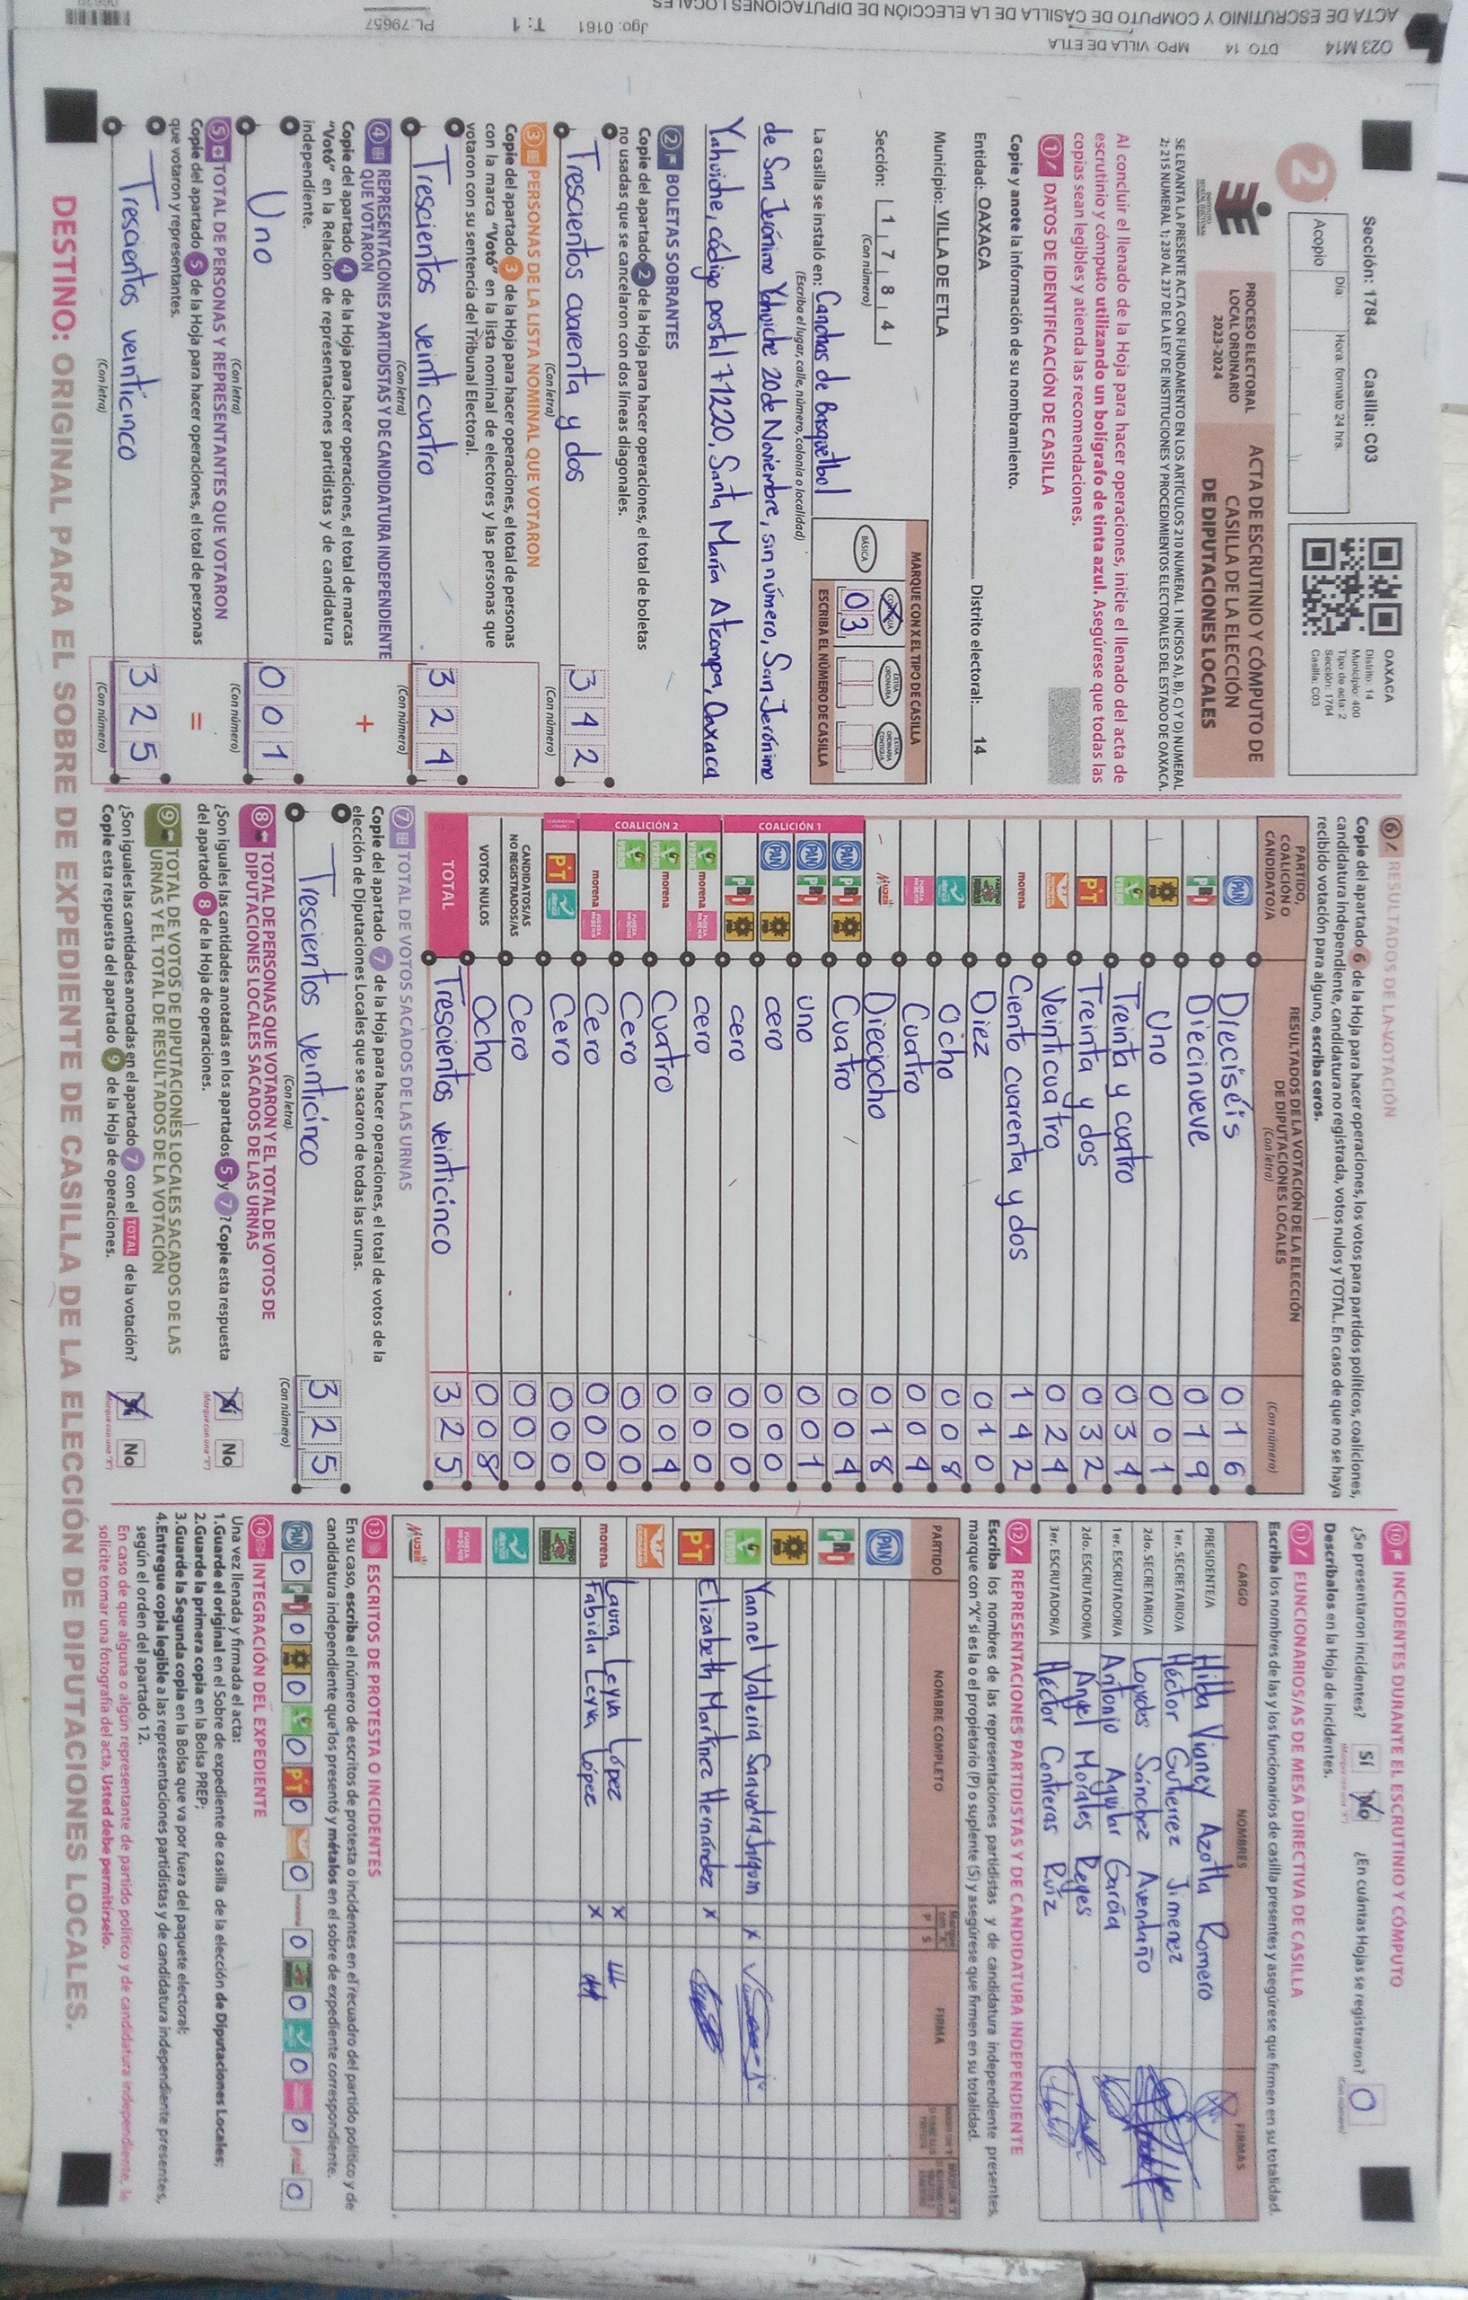 Sección: 1784 Casilla: C03
2
Día Hora formato 24 hrs.
Acopio
OAXACA
Distrito: 14
Municipio: 400
Tipo de acta: 2
Sección: 1784
Casilla: C03
PROCESO ELECTORAL
LOCAL ORDINARIO
2023-2024
ACTA DE ESCRUTINIO Y CÓMPUTO DE
CASILLA DE LA ELECCIÓN
DE DIPUTACIONES LOCALES
SE LEVANTA LA PRESENTE ACTA CON FUNDAMENTO EN LOS ARTÍCULOS 210 NUMERAL 1 INCISOS A), B), C) Y D) NUMERAL
2; 215 NUMERAL 1; 230 AL 237 DE LA LEY DE INSTITUCIONES Y PROCEDIMIENTOS ELECTORALES DEL ESTADO DE OAXACA.
Al concluir el llenado de la Hoja para hacer operaciones, inicie el llenado del acta de
escrutinio y cómputo utilizando un bolígrafo de tinta azul. Asegúrese que todas las
copias sean legibles y atienda las recomendaciones.
1 DATOS DE IDENTIFICACIÓN DE CASILLA
Copie y anote la información de su nombramiento.
Entidad: OAXACA Distrito electoral: 14
Municipio: VILLA DE ETLA
Sección: 1 7 8 4
(Con número)
MARQUE CON X EL TIPO DE CASILLA
BÁSICA CONTIGUA EXTRAORDINARIA EXTRAORDINARIA CONTIGUA
03
ESCRIBA EL NÚMERO DE CASILLA
La casilla se instaló en: Canchas de Basquetbol
(Escriba el lugar, calle, número, colonia o localidad)
de San Jerónimo Yahuiche 20 de Noviembre, sin número, San Jerónimo
Yahuiche, código postal 71220, Santa María Atzompa, Oaxaca
2 BOLETAS SOBRANTES
Copie del apartado 2 de la Hoja para hacer operaciones, el total de boletas
no usadas que se cancelaron con dos líneas diagonales.
Trescientos cuarenta y dos 342
(Con letra) (Con número)
3 PERSONAS DE LA LISTA NOMINAL QUE VOTARON
Copie del apartado 3 de la Hoja para hacer operaciones, el total de personas
con la marca "Votó" en la lista nominal de electores y las personas que
votaron con su sentencia del Tribunal Electoral.
Trescientos veinticuatro 324
(Con letra) (Con número)
4 REPRESENTACIONES PARTIDISTAS Y DE CANDIDATURA INDEPENDIENTE
QUE VOTARON
+
Copie del apartado 4 de la Hoja para hacer operaciones, el total de marcas
"Votó" en la Relación de representaciones partidistas y de candidatura
independiente.
Uno 001
(Con letra) (Con número)
5 TOTAL DE PERSONAS Y REPRESENTANTES QUE VOTARON
=
Copie del apartado 5 de la Hoja para hacer operaciones, el total de personas
que votaron y representantes.
Trescientos veinticinco 325
(Con letra) (Con número)
6 RESULTADOS DE LA VOTACIÓN
Copie del apartado 6 de la Hoja para hacer operaciones, los votos para partidos políticos, coaliciones,
candidatura independiente, candidatura no registrada, votos nulos y TOTAL. En caso de que no se haya
recibido votación para alguno, escriba ceros.
PARTIDO,
COALICIÓN O
CANDIDATO/A
RESULTADOS DE LA VOTACIÓN DE LA ELECCIÓN
DE DIPUTACIONES LOCALES
(Con letra)
(Con número)
PAN Dieciséis 016
PRI Diecinueve 019
PRD Uno 001
VERDE Treinta y cuatro 034
PT Treinta y dos 032
Veinticuatro 024
morena Ciento cuarenta y dos 142
Diez 010
Ocho 008
Cuatro 004
MUJER Dieciocho 018
COALICIÓN 1
PAN PRI PRD Cuatro 004
PAN PRI uno 001
PAN PRD cero 000
PRI PRD cero 000
COALICIÓN 2
VERDE morena cero 000
VERDE morena Cuatro 004
VERDE Cero 000
morena Cero 000
PT Cero 000
CANDIDATOS/AS
NO REGISTRADOS/AS Cero 000
VOTOS NULOS Ocho 008
TOTAL Trescientos veinticinco 325
7 TOTAL DE VOTOS SACADOS DE LAS URNAS
Copie del apartado 7 de la Hoja para hacer operaciones, el total de votos de la
elección de Diputaciones Locales que se sacaron de todas las urnas.
Trescientos veinticinco 325
(Con letra) (Con número)
8 TOTAL DE PERSONAS QUE VOTARON Y EL TOTAL DE VOTOS DE
DIPUTACIONES LOCALES SACADOS DE LAS URNAS
¿Son iguales las cantidades anotadas en los apartados 5 y 7? Copie esta respuesta
del apartado 8 de la Hoja de operaciones.
Sí No
(Marque con una "X")
9 TOTAL DE VOTOS DE DIPUTACIONES LOCALES SACADOS DE LAS
URNAS Y EL TOTAL DE RESULTADOS DE LA VOTACIÓN
¿Son iguales las cantidades anotadas en el apartado 7 con el TOTAL de la votación?
Copie esta respuesta del apartado 9 de la Hoja de operaciones.
Sí No
(Marque con una "X")
10 INCIDENTES DURANTE EL ESCRUTINIO Y CÓMPUTO
¿Se presentaron incidentes? Sí No ¿En cuántas Hojas se registraron? 0
Descríbalos en la Hoja de incidentes.
11 FUNCIONARIOS/AS DE MESA DIRECTIVA DE CASILLA
Escriba los nombres de las y los funcionarios de casilla presentes y asegúrese que firmen en su totalidad.
CARGO NOMBRES FIRMAS
PRESIDENTE/A Hilda Vianey Azotla Romero
1er. SECRETARIO/A Héctor Gutierrez Jimenez
2do. SECRETARIO/A Lourdes Sánchez Avendaño
1er. ESCRUTADOR/A Antonio Aguilar García
2do. ESCRUTADOR/A Ángel Morales Reyes
3er. ESCRUTADOR/A Héctor Contreras Ruíz
12 REPRESENTACIONES PARTIDISTAS Y DE CANDIDATURA INDEPENDIENTE
Escriba los nombres de las representaciones partidistas y de candidatura independiente presentes,
marque con "X" si es la o el propietario (P) o suplente (S) y asegúrese que firmen en su totalidad.
PARTIDO NOMBRE COMPLETO P S FIRMA
PAN
PRI
PRD
VERDE Yannel Valeria Saavedra X
PT Elizabeth Martínez Hernández X
morena Laura Leyva López X
Fabiola Leyva López X
MUJER
13 ESCRITOS DE PROTESTA O INCIDENTES
En su caso, escriba el número de escritos de protesta o incidentes en el recuadro del partido político y de
candidatura independiente que los presentó y métalos en el sobre de expediente correspondiente.
PAN 0 PRI 0 0 VERDE 0 PT 0 0 morena 0 0 0 0 0
14 INTEGRACIÓN DEL EXPEDIENTE
Una vez llenada y firmada el acta:
1.Guarde el original en el Sobre de expediente de casilla de la elección de Diputaciones Locales;
2.Guarde la primera copia en la Bolsa PREP;
3.Guarde la Segunda copia en la Bolsa que va por fuera del paquete electoral;
4.Entregue copia legible a las representaciones partidistas y de candidatura independiente presentes,
según el orden del apartado 12.
En caso de que alguna o algún representante de partido político y de candidatura independiente, le
solicite tomar una fotografía del acta, Usted debe permitírselo.
DESTINO: ORIGINAL PARA EL SOBRE DE EXPEDIENTE DE CASILLA DE LA ELECCIÓN DE DIPUTACIONES LOCALES.
O23 M14 DTO. 14 MPO. VILLA DE ETLA
ACTA DE ESCRUTINIO Y COMPUTO DE CASILLA DE LA ELECCIÓN DE DIPUTACIONES LOCALES
Jgo: 0161 T: 1 PL: 79657